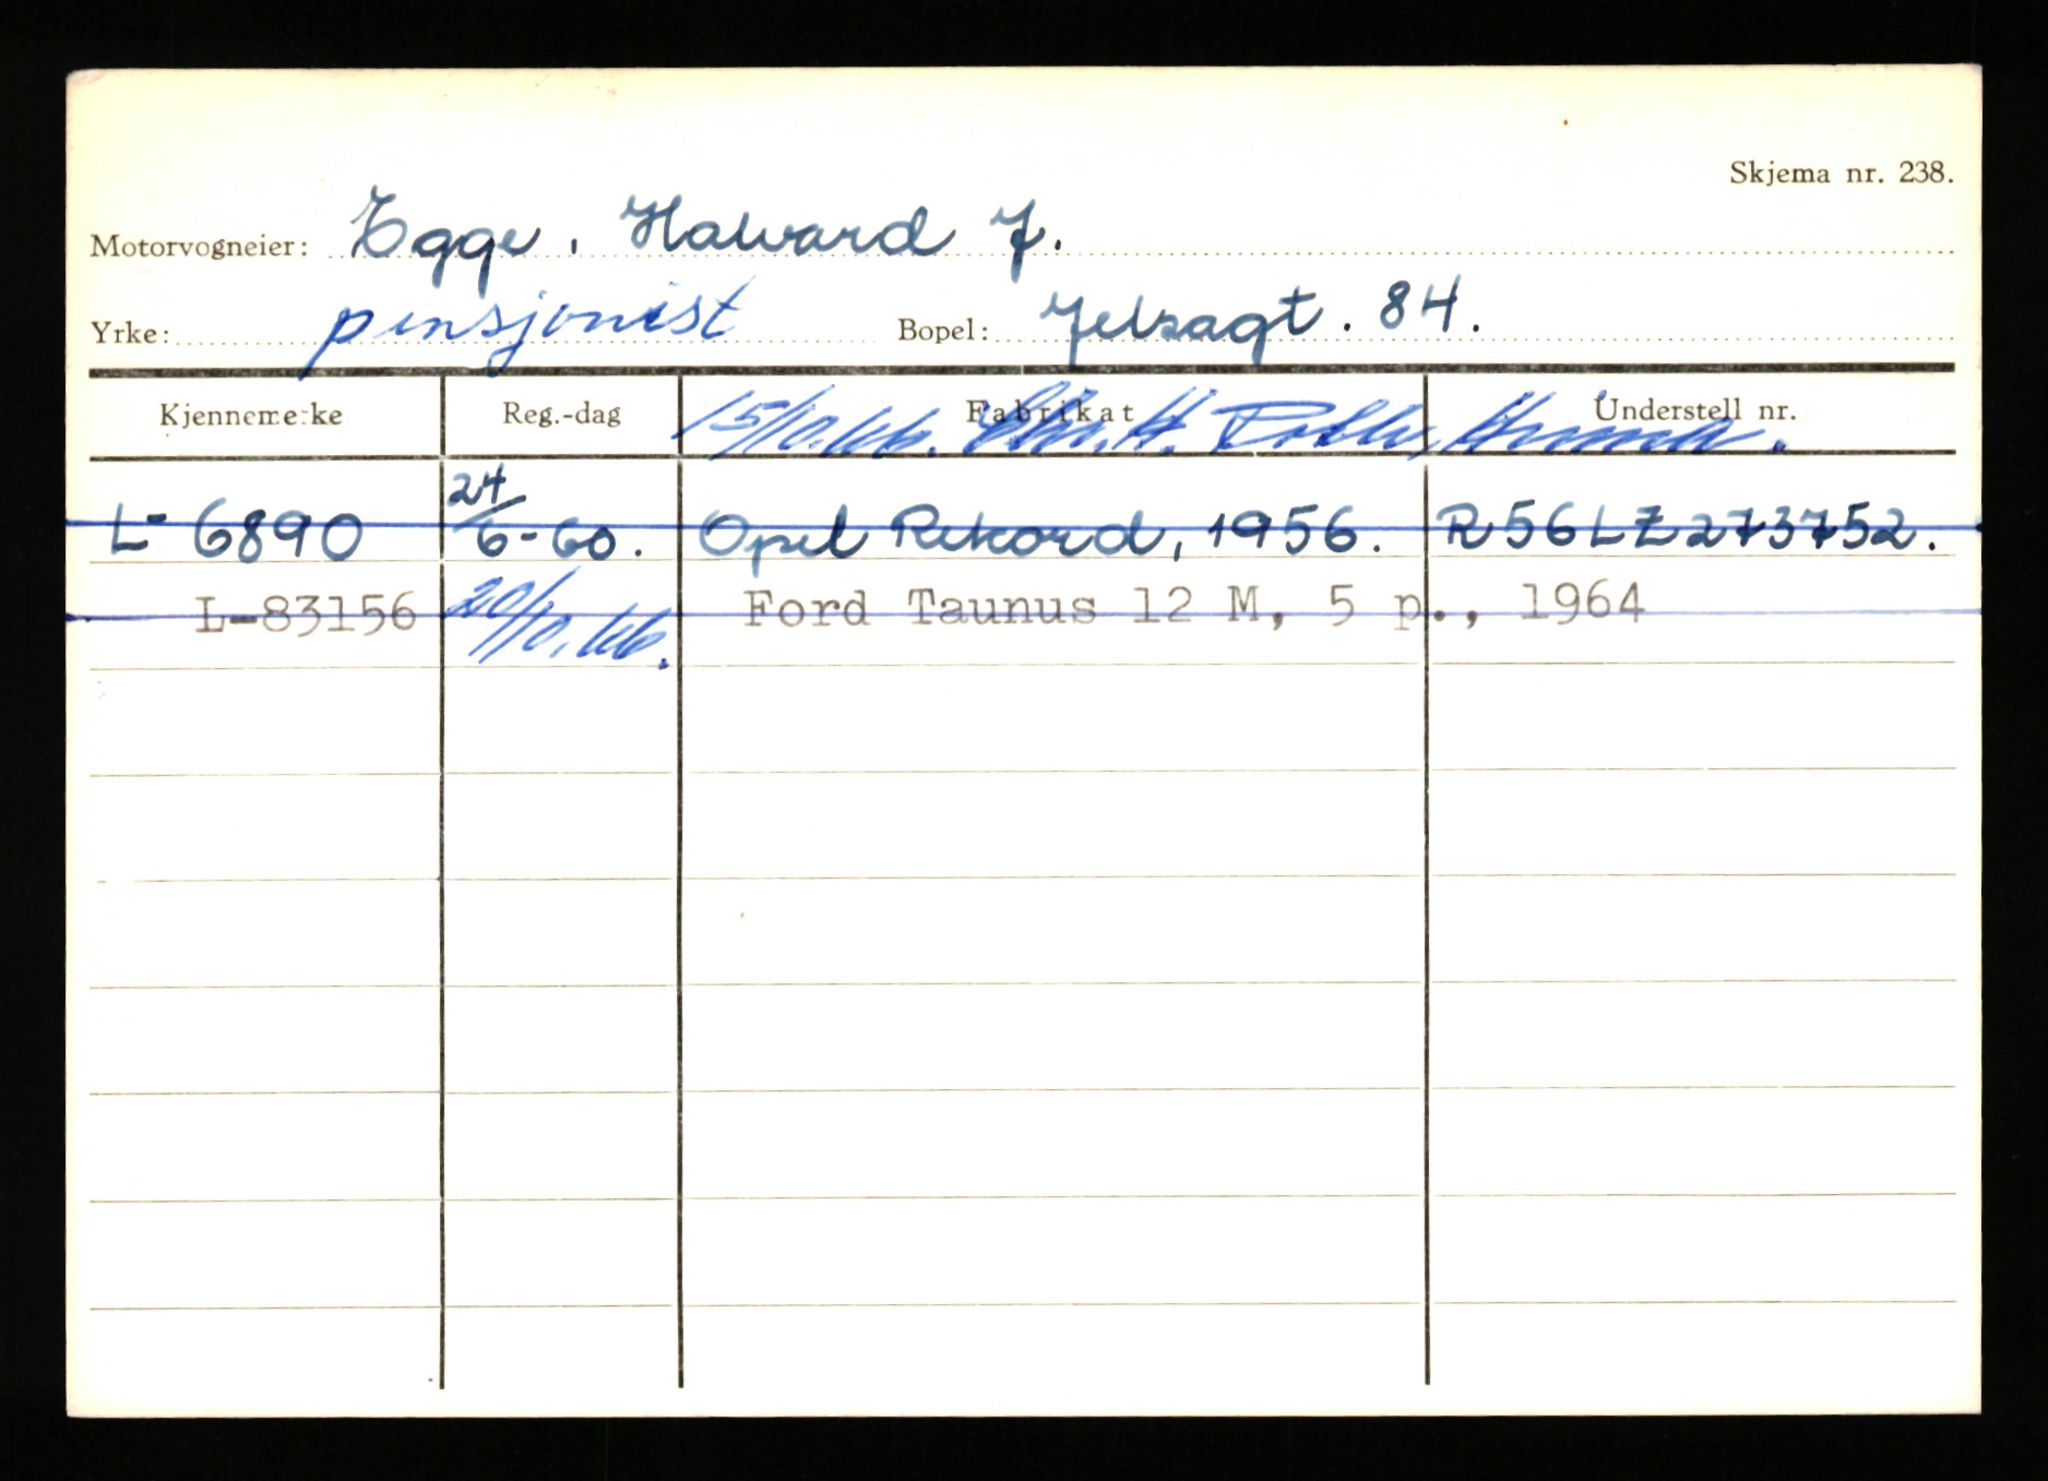 Skjema nr. 238.
Motorvogneier: Egge, Halvard J.
Yrke: pensjonist Bopel: Jelsagt. 84.
Kjennemerke Reg.-dag Fabrikat Understell nr.
15/10.66. Chr. H.
L- 6890 24/6-60. Opel Rekord, 1956. R56LZ273752.
L-83156 20/10.66. Ford Taunus 12 M, 5 p., 1964